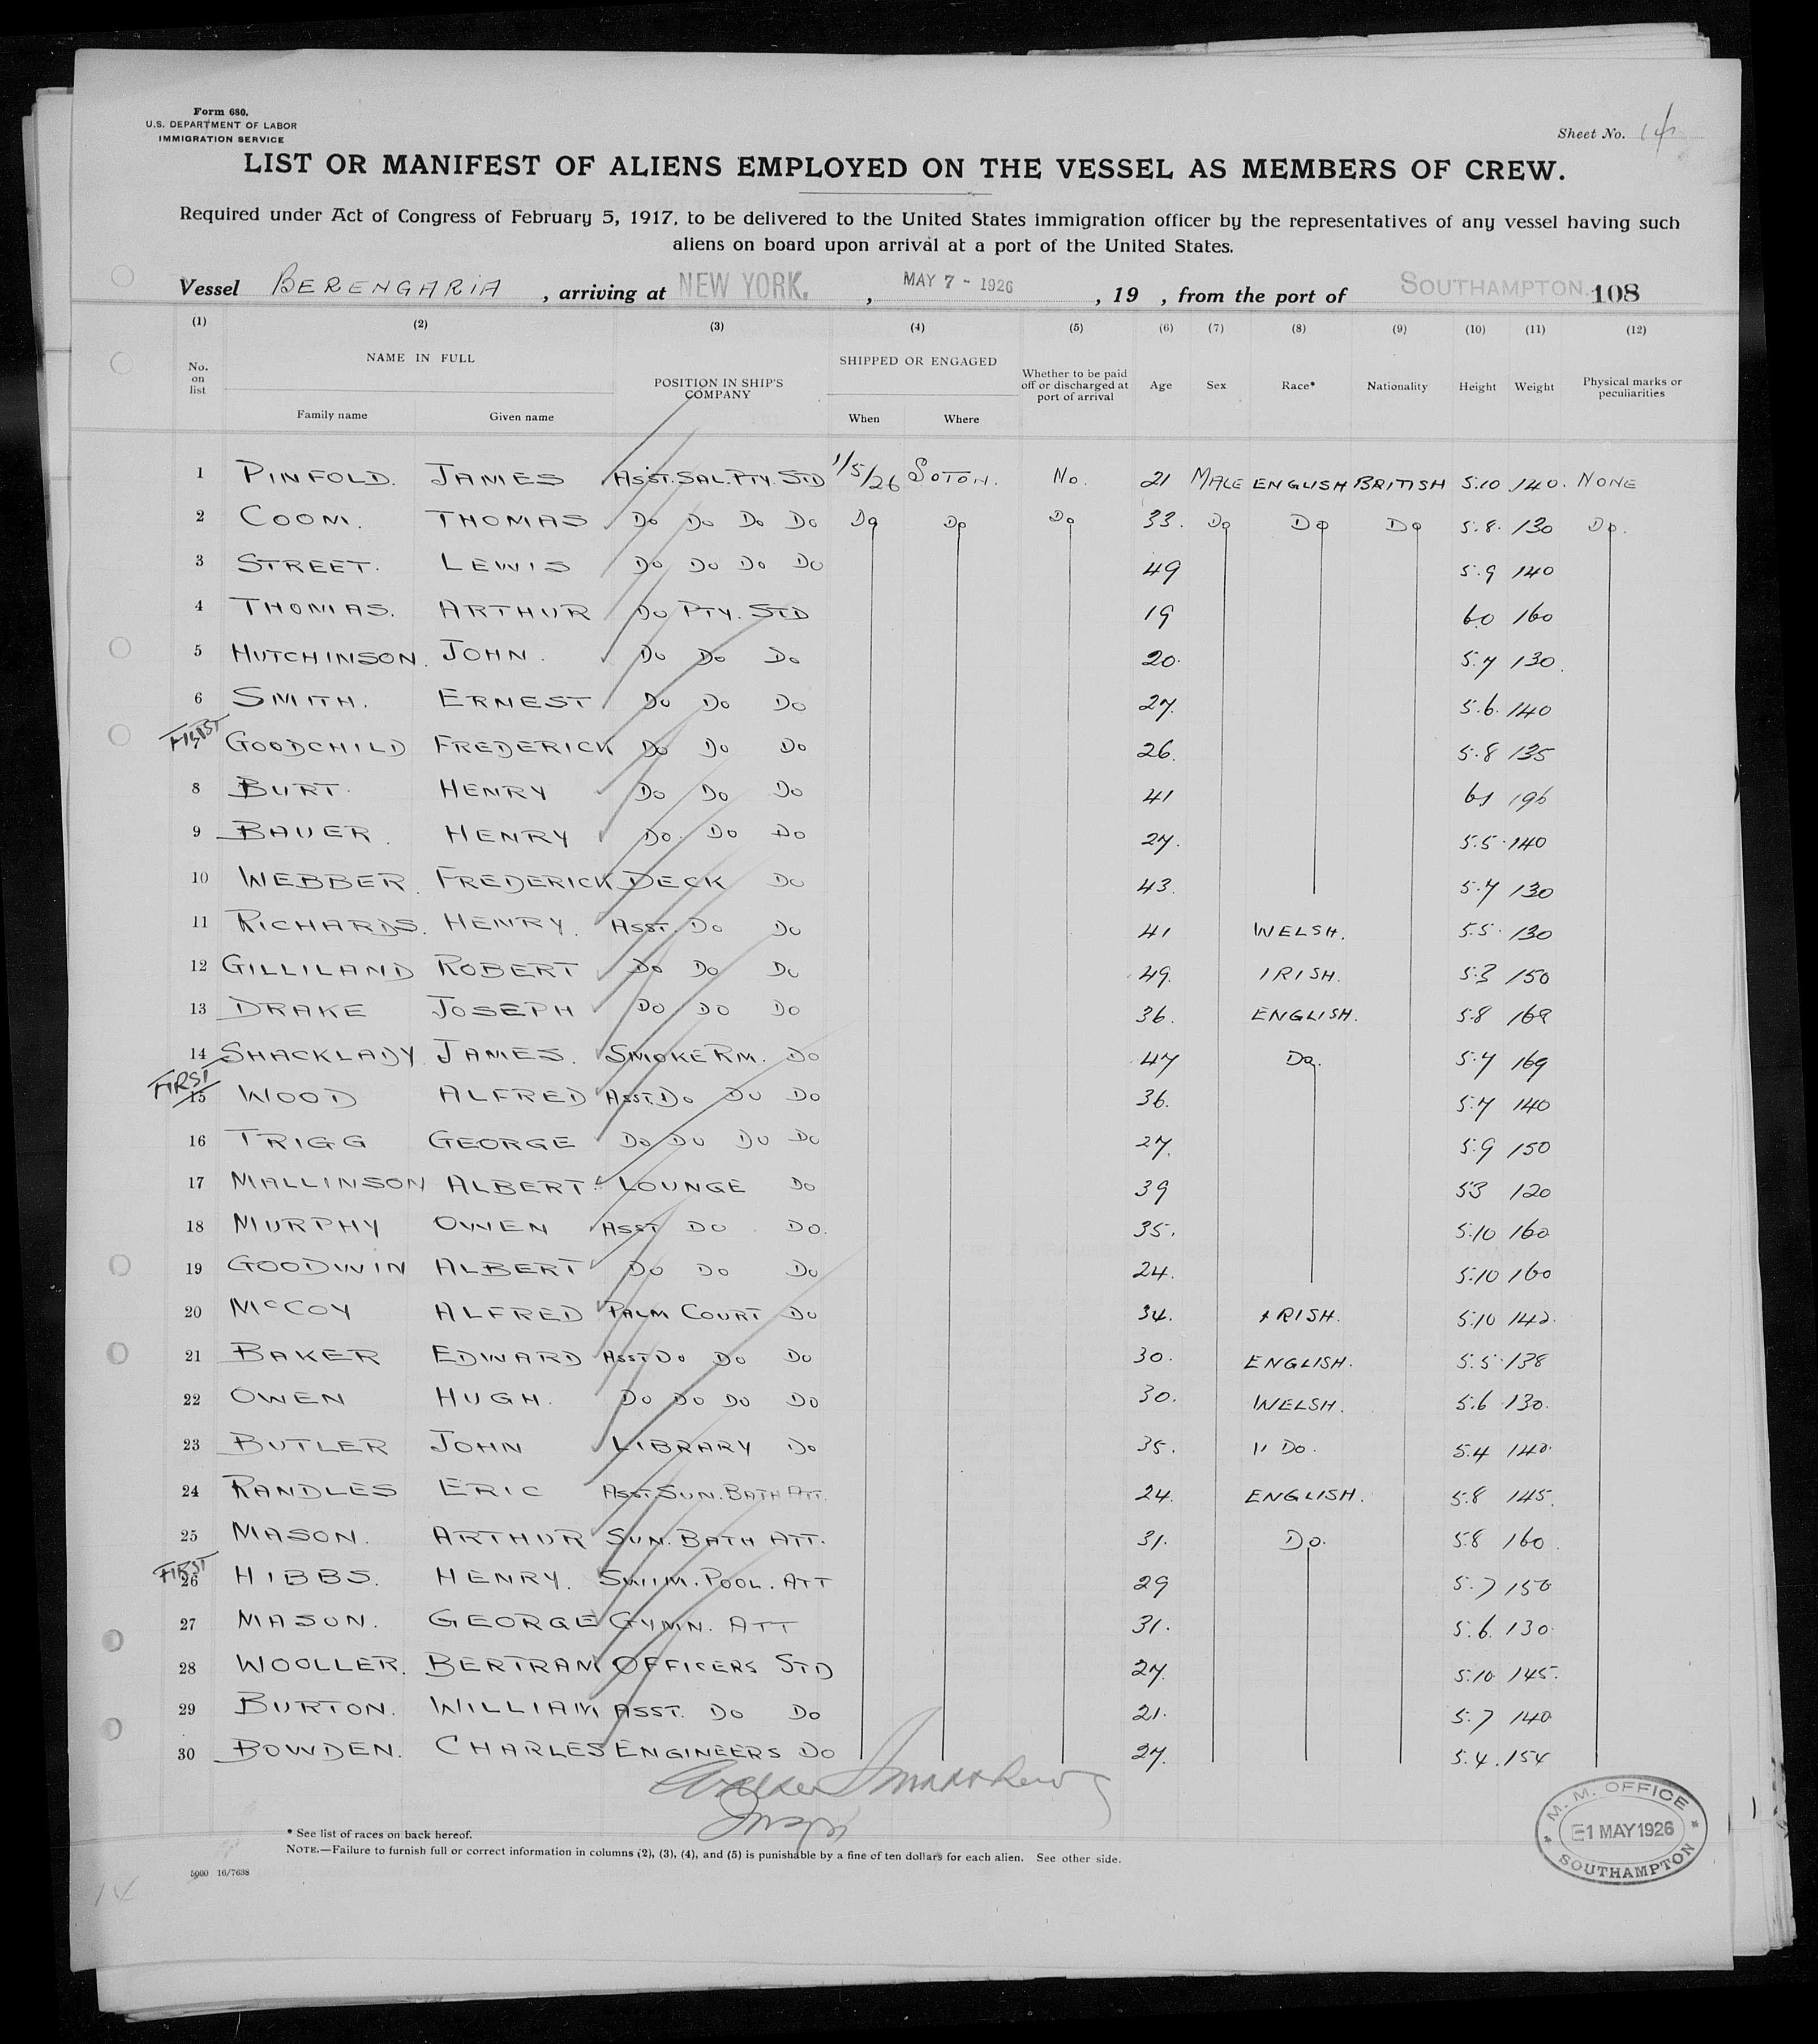 Form 680.
U.S. DEPARTMENT OF LABOR
IMMIGRATION SERVICE
Sheet No. 14
LIST OR MANIFEST OF ALIENS EMPLOYED ON THE VESSEL AS MEMBERS OF CREW.
Required under Act of Congress of February 5, 1917, to be delivered to the United States immigration officer by the representatives of any vessel having such
aliens on board upon arrival at a port of the United States.
Vessel BERENGARIA , arriving at NEW YORK. , MAY 7 - 1926 , 19 , from the port of SOUTHAMPTON. 108
(1) (2) (3) (4) (5) (6) (7) (8) (9) (10) (11) (12)
No. on list NAME IN FULL Family name Given name POSITION IN SHIP'S COMPANY SHIPPED OR ENGAGED When Where Whether to be paid off or discharged at port of arrival Age Sex Race* Nationality Height Weight Physical marks or peculiarities
1 PINFOLD. JAMES ASST. SAL. PTY. STD 1/5/26 SOTON. No. 21 MALE ENGLISH BRITISH 5.10 140. NONE
2 COOM. THOMAS DO DO DO DO DO DO DO 33. DO DO DO 5.8. 130 DO.
3 STREET. LEWIS DO DO DO DO 49 5.9 140
4 THOMAS. ARTHUR DO PTY. STD 19 6.0 160
5 HUTCHINSON. JOHN. DO DO DO 20. 5.7 130.
6 SMITH. ERNEST DO DO DO 27. 5.6. 140
FIRST GOODCHILD FREDERICK DO DO DO 26. 5.8 135
8 BURT. HENRY DO DO DO 41 6.1 196
9 BAUER. HENRY DO. DO DO 27. 5.5. 140
10 WEBBER. FREDERICK DECK DO 43. 5.7 130
11 RICHARDS. HENRY. ASST. DO DO 41 WELSH. 5.5. 130
12 GILLILAND ROBERT DO DO DO 49. IRISH. 5.3 150
13 DRAKE JOSEPH DO DO DO 36. ENGLISH. 5.8 169
14 SHACKLADY JAMES. SMOKE RM. DO 47 DO. 5.7 169
FIRST 15 WOOD ALFRED ASST. DO DO DO 36. 5.7 140
16 TRIGG GEORGE DO DO DO DO 27. 5.9 150
17 MALLINSON ALBERT LOUNGE DO 39 5.3 120
18 MURPHY OWEN ASST DO DO. 35. 5.10 160
19 GOODWIN ALBERT DO DO DO 24. 5.10 160
20 McCOY ALFRED PALM COURT DO 34. IRISH. 5.10 142.
21 BAKER EDWARD ASST DO DO DO 30. ENGLISH. 5.5. 138
22 OWEN HUGH. DO DO DO DO 30. WELSH. 5.6 130.
23 BUTLER JOHN LIBRARY DO 35. " DO. 5.4 140.
24 RANDLES ERIC ASST. SUN. BATH ATT. 24. ENGLISH. 5.8 145.
25 MASON. ARTHUR SUN. BATH ATT. 31. DO. 5.8 160.
FIRST 26 HIBBS. HENRY. SWIM. POOL. ATT 29 5.7 150
27 MASON. GEORGE GYMN. ATT 31. 5.6. 130.
28 WOOLLER. BERTRAM OFFICERS STD 27. 5.10. 145.
29 BURTON. WILLIAM ASST. DO DO 21. 5.7 140
30 BOWDEN. CHARLES ENGINEERS DO 27. 5.4. 154
* See list of races on back hereof.
NOTE.—Failure to furnish full or correct information in columns (2), (3), (4), and (5) is punishable by a fine of ten dollars for each alien. See other side.
5000 16/7638
M. M. OFFICE
E1 MAY 1926
SOUTHAMPTON
14